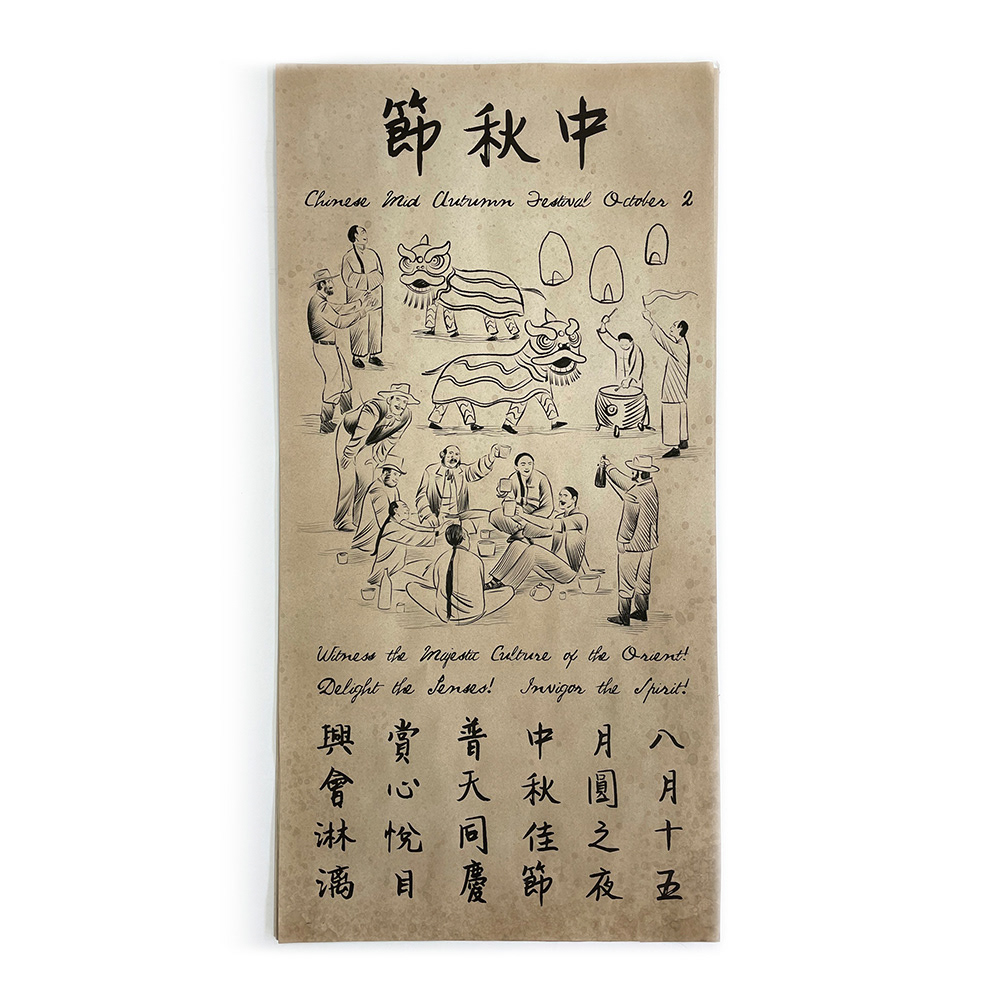 中秋節
Chinese Mid Autumn Festival October 2
Witness the Majestic Culture of the Orient!
Delight the Senses! Invigor the Spirit!
八月十五
月圓之夜
中秋佳節
普天同慶
賞心悅目
興會淋漓